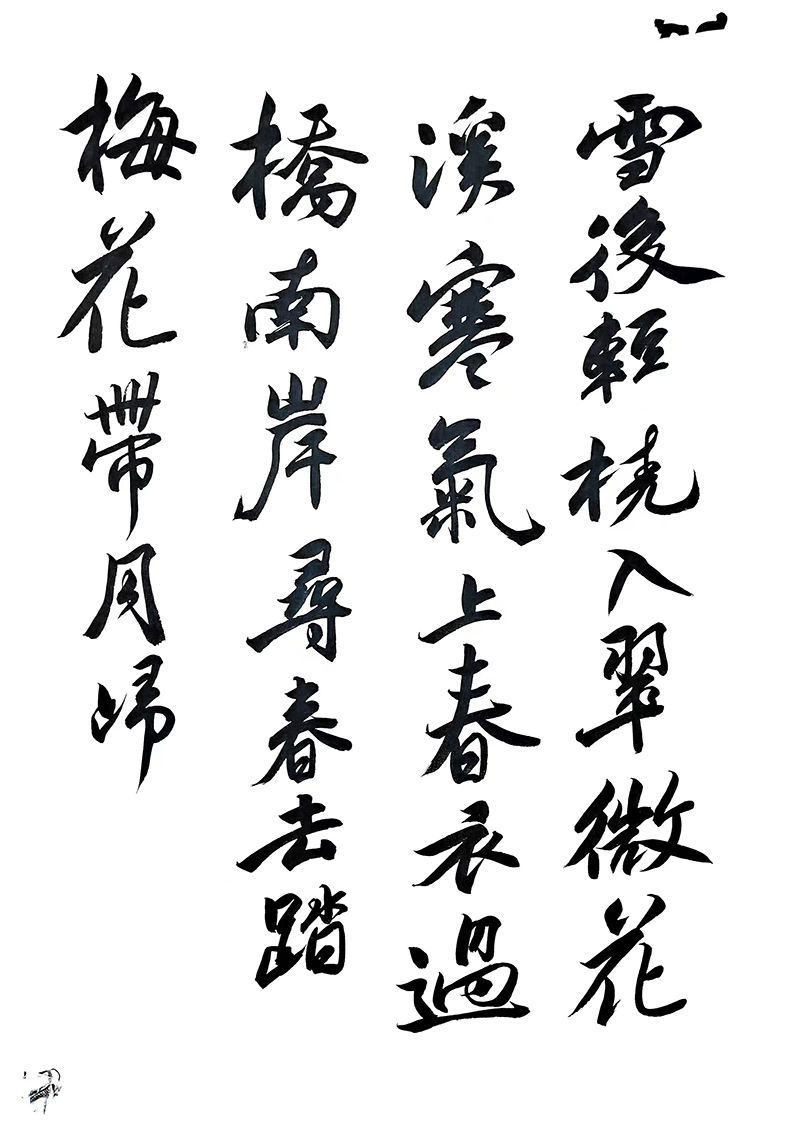 雪後輕橈入翠微花
溪寒氣上春衣過
橋南岸尋春去踏
梅花帶月歸